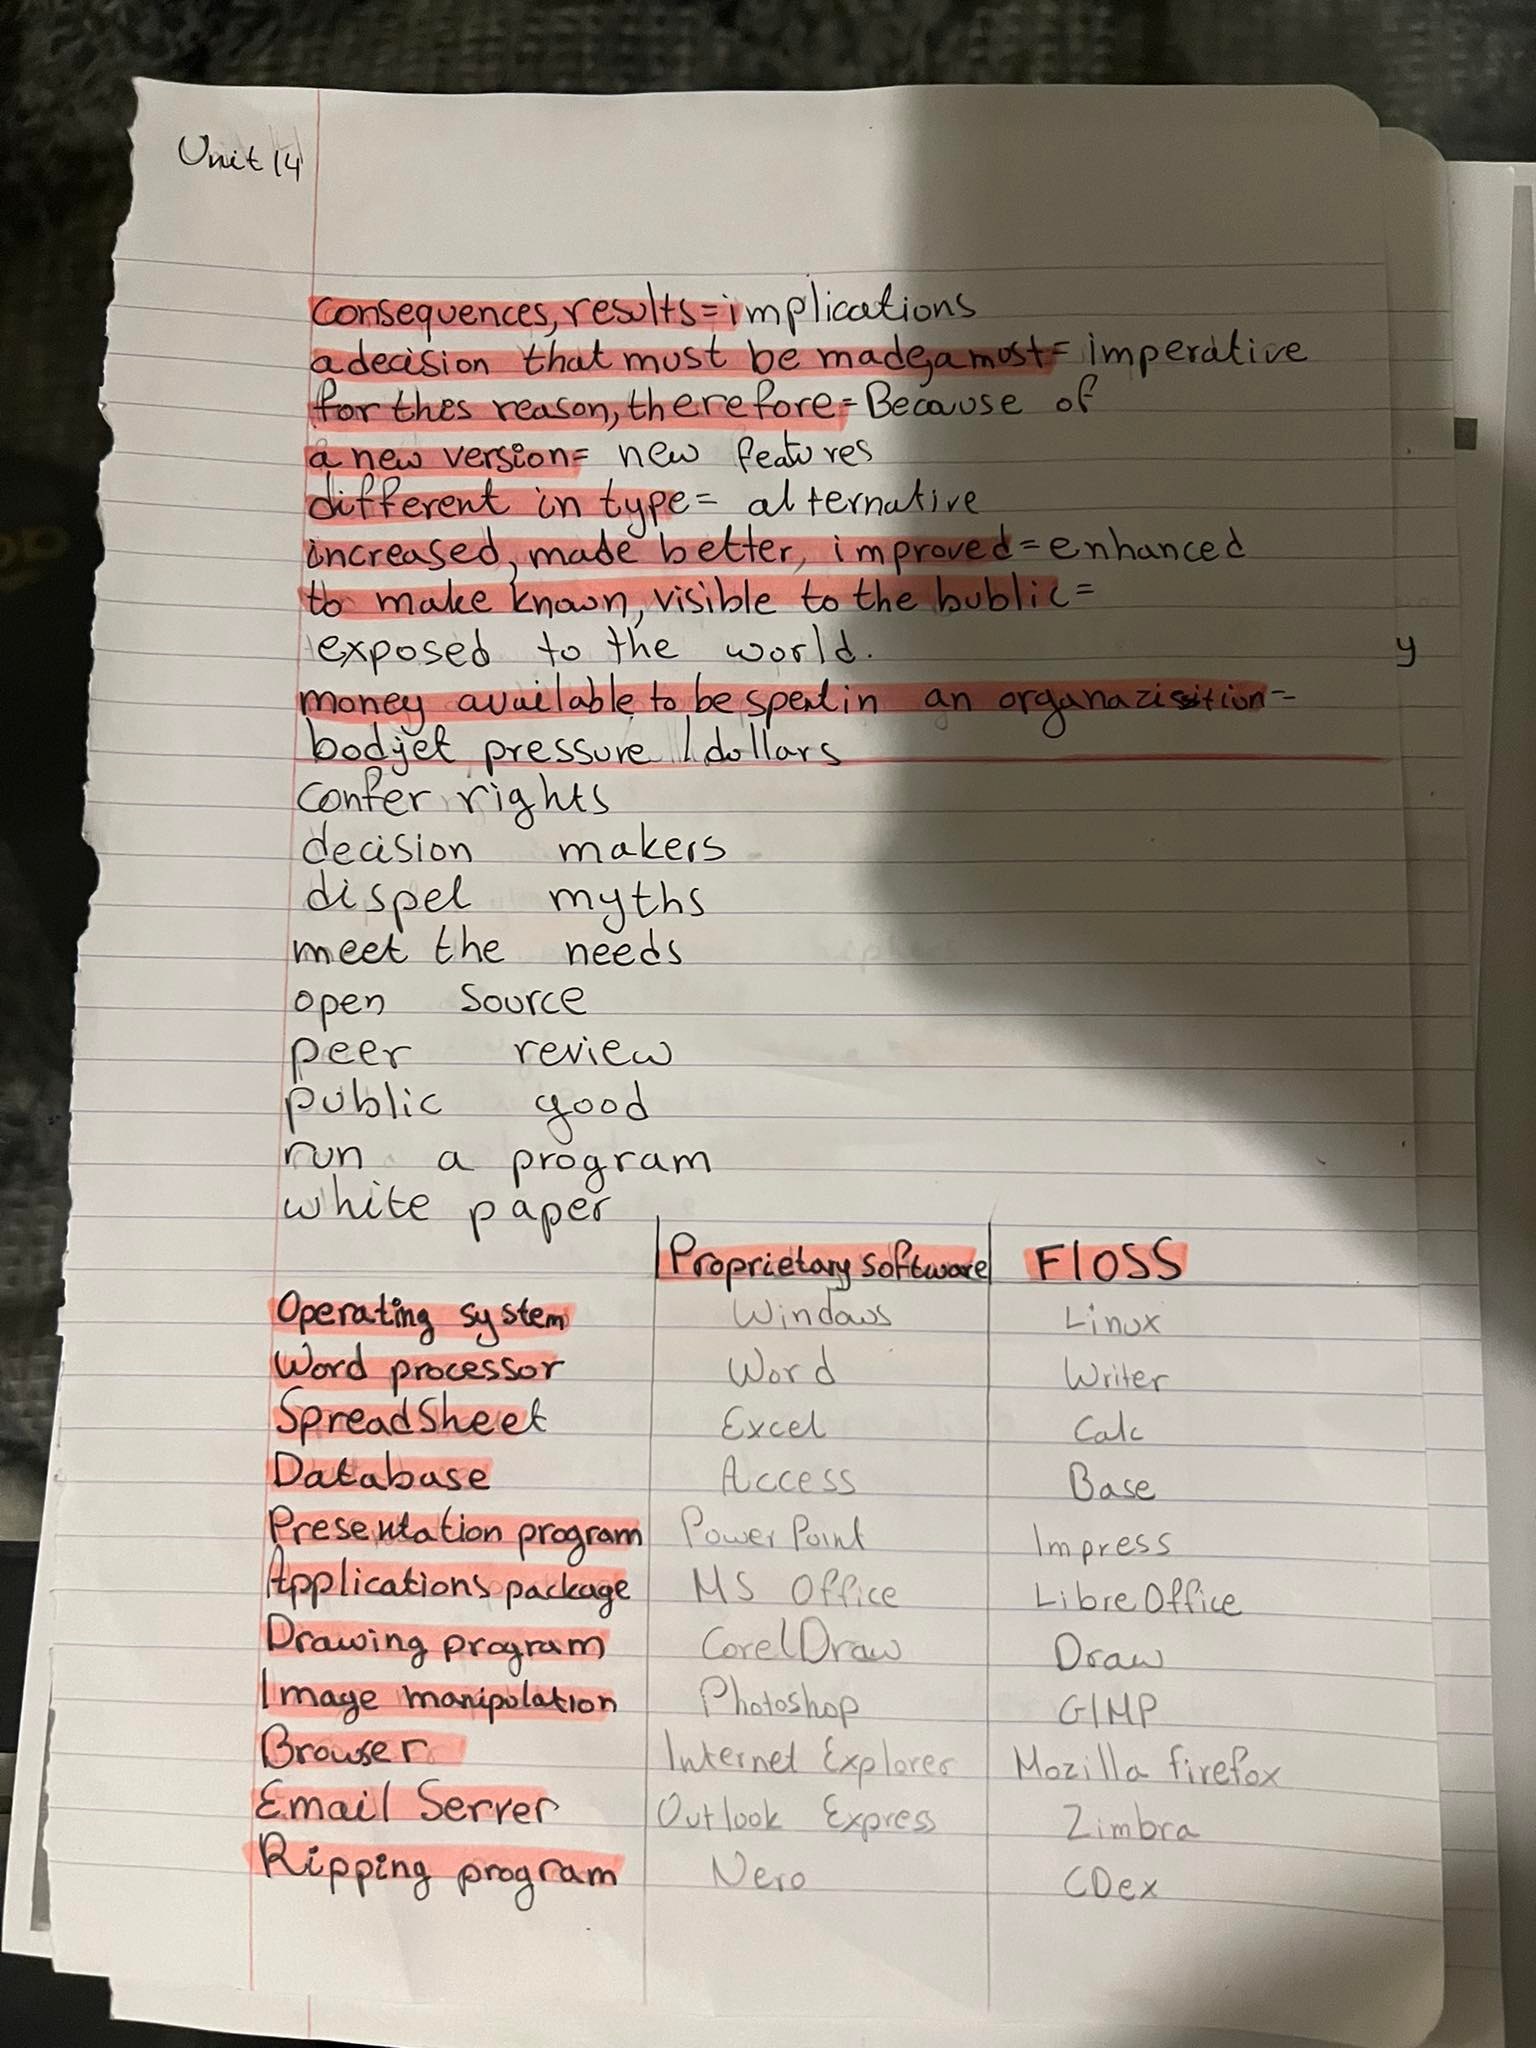 Unit 14
consequences, results = implications
a decision that must be made, a must = imperative
for thes reason, therefore = Because of
a new version = new features
different in type = alternative
increased, made better, improved = enhanced
to make known, visible to the bublic =
exposed to the world.
y
money available to be spent in an organazisition =
bodjet pressure / dollars
confer rights
decision makers
dispel myths
meet the needs
open source
peer review
public good
run a program
white paper
Proprietary software FlOSS
Operating system Windows Linux
Word processor Word Writer
SpreadSheet Excel Calc
Database Access Base
Presentation program PowerPoint Impress
Applications package MS Office LibreOffice
Drawing program CorelDraw Draw
Image manipulation Photoshop GIMP
Browser Internet Explorer Mozilla firefox
Email Server Outlook Express Zimbra
Ripping program Nero CDex